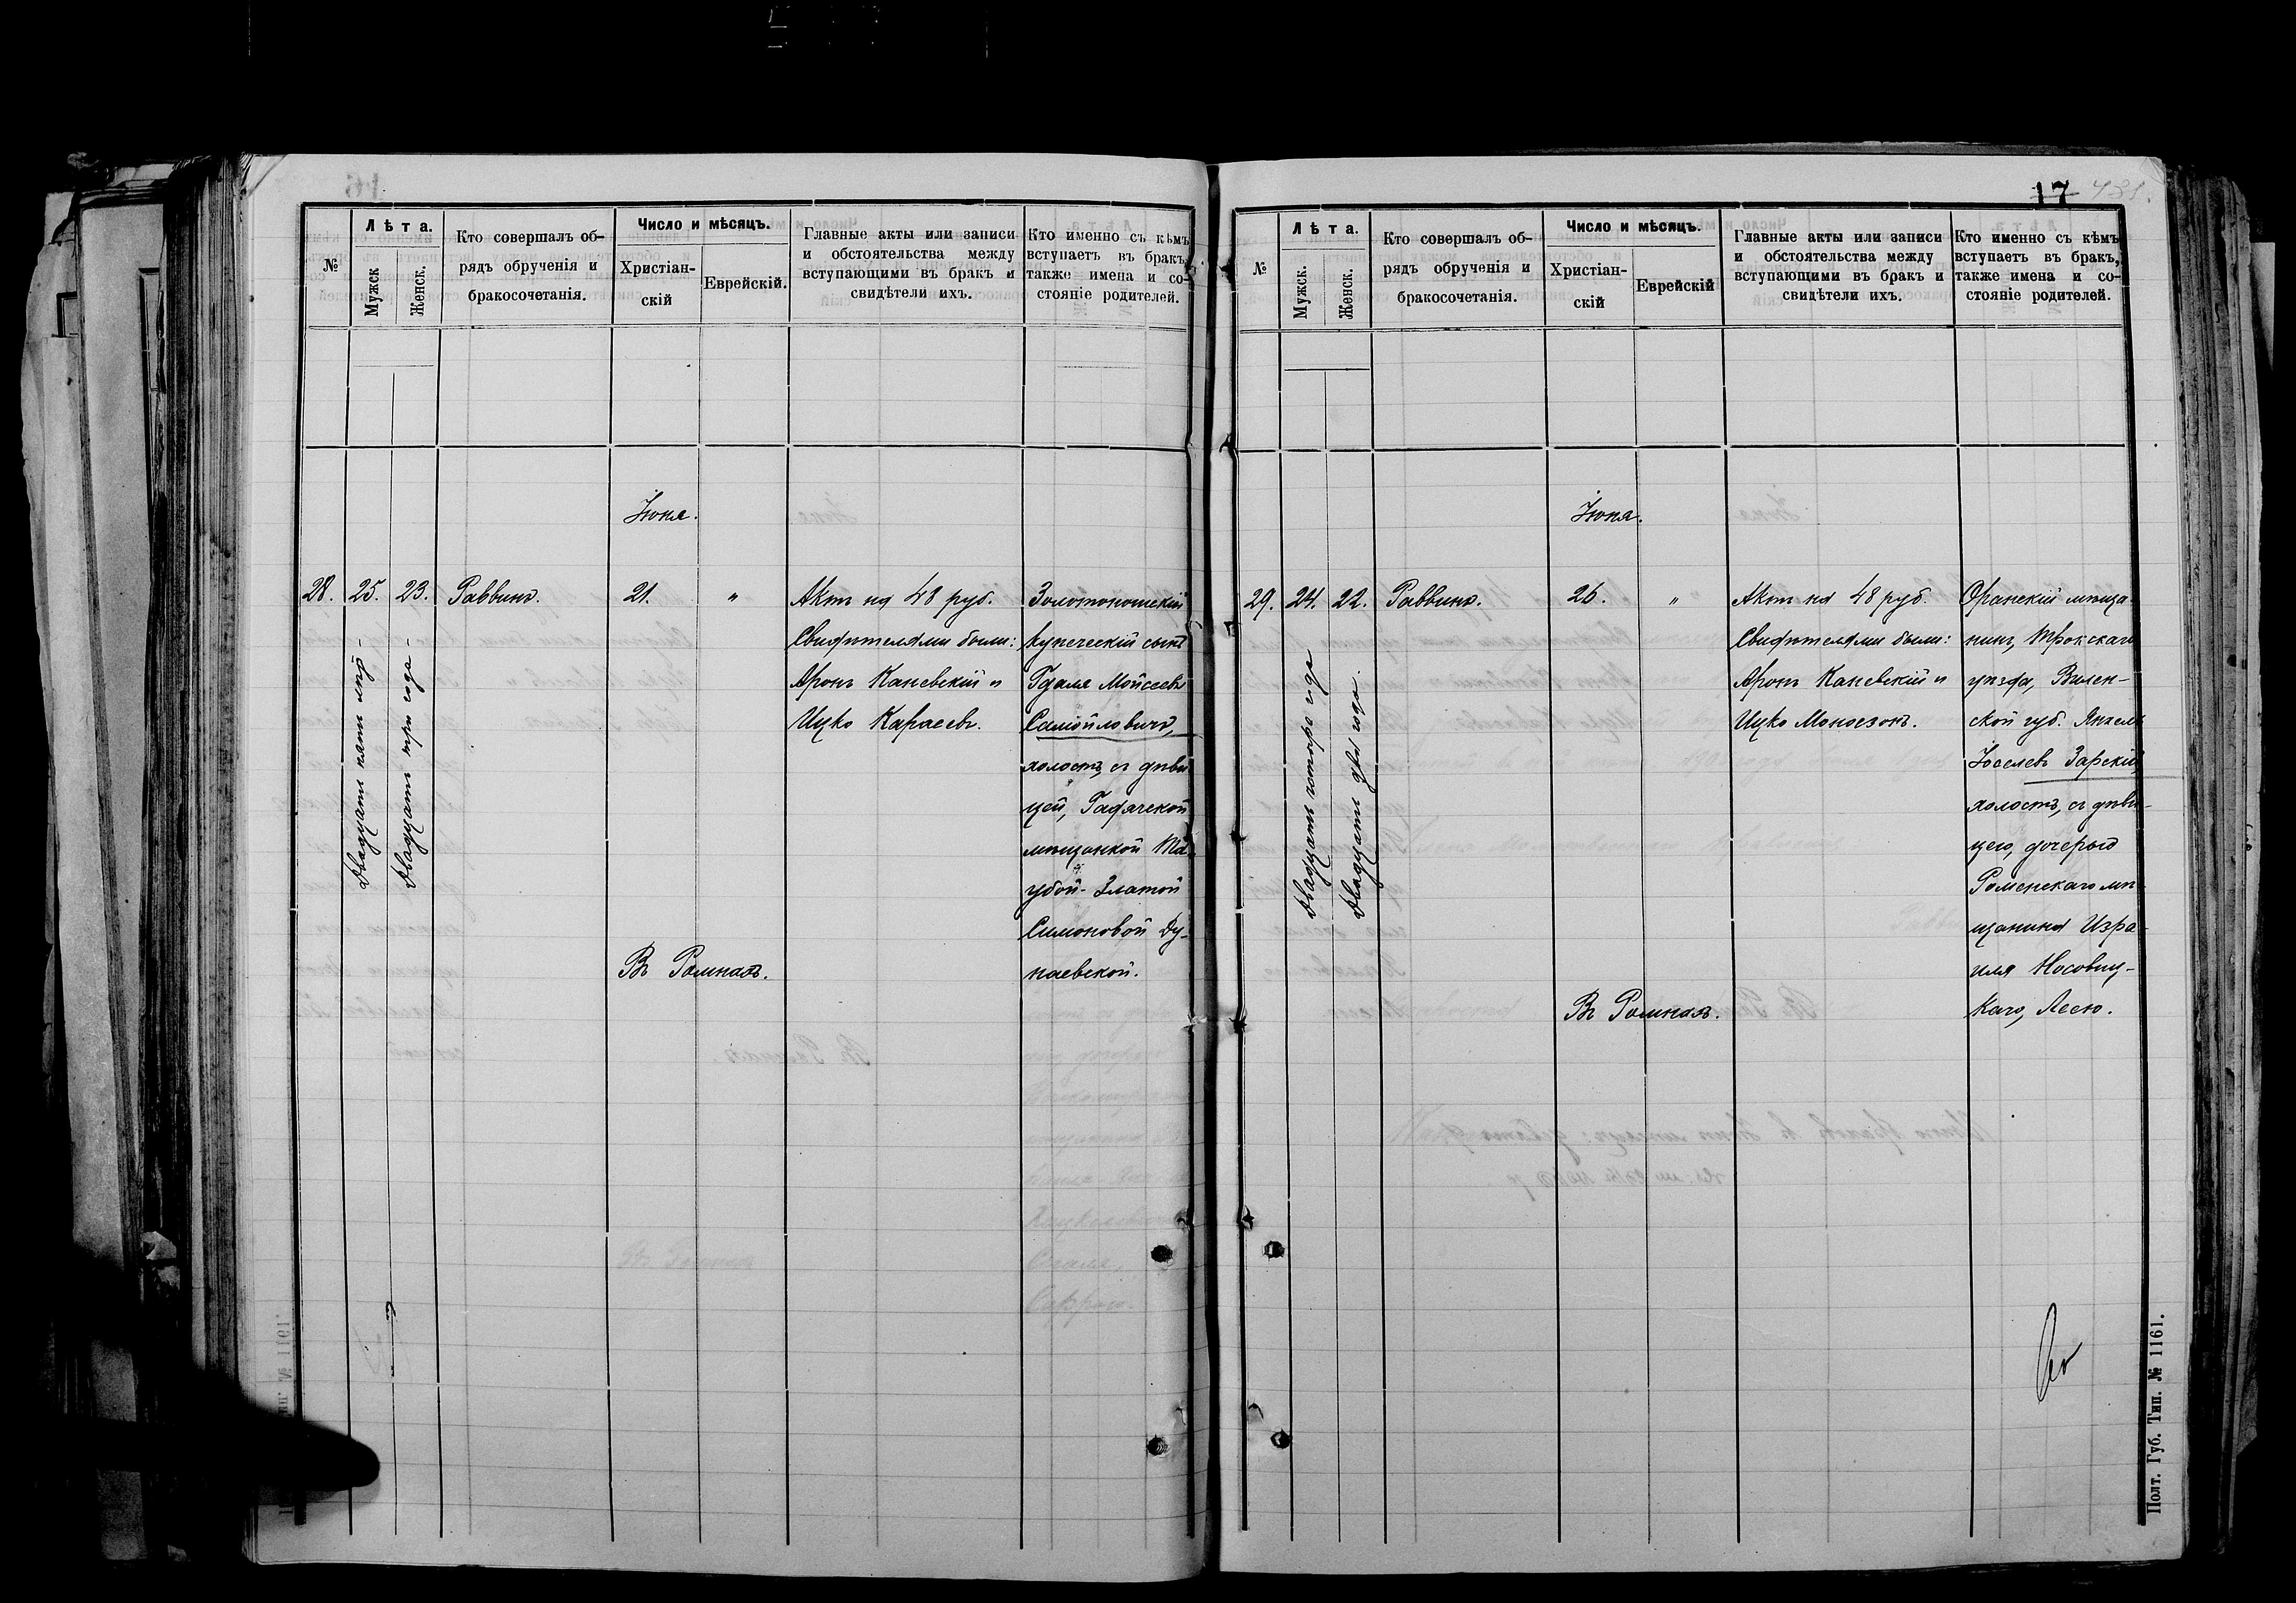 №
Лѣта.
Мужск
Женск.
Кто совершалъ об-
рядъ обрученія и
бракосочетанія.
Число и мѣсяцъ.
Христіан-
скій
Еврейскій.
Главные акты или записи
и обстоятельства между
вступающими въ бракъ и
свидѣтели ихъ.
Кто именно съ кѣмъ
вступаетъ въ бракъ,
также имена и со-
стояніе родителей.
Іюня.
28.
25.
Двадцать пять лѣтъ
23.
Двадцать три года
Раввинъ.
21.
"
Въ Ромнахъ.
Актъ на 48 руб.
Свидѣтелями были:
Аронъ Каневскій и
Ицко Карасевъ.
Золотоношскій
купеческій сынъ
Гдаля Мойсеевъ
Самойловичъ,
холостъ, съ дѣви
цей, Гадячской
мѣщанкой Та
убой-Златой
Симоновой Ду-
наевской.
17
№
Лѣта.
Мужск.
Женск.
Кто совершалъ об-
рядъ обрученія и
бракосочетанія.
Число и мѣсяцъ.
Христіан-
скій
Еврейскій
Главные акты или записи
и обстоятельства между
вступающими въ бракъ и
свидѣтели ихъ.
Кто именно съ кѣмъ
вступаетъ въ бракъ,
также имена и со-
стояніе родителей.
Іюня.
29.
24.
Двадцать четыре года
22.
Двадцать два года.
Раввинъ.
26.
"
Въ Ромнахъ.
Актъ на 48 руб.
Свидѣтелями были:
Аронъ Каневскій и
Ицко Моносзонъ.
Оранскій мѣща-
нинъ, Трокскаго
уѣзда, Вилен-
ской губ. Янкель
Іоселевъ Зарскій,
холостъ, съ дѣви-
цею, дочерью
Роменскаго мѣ-
щанина Изра-
иля Носовиц-
каго, Лесею.
Полт. Губ. Тип. № 1161.